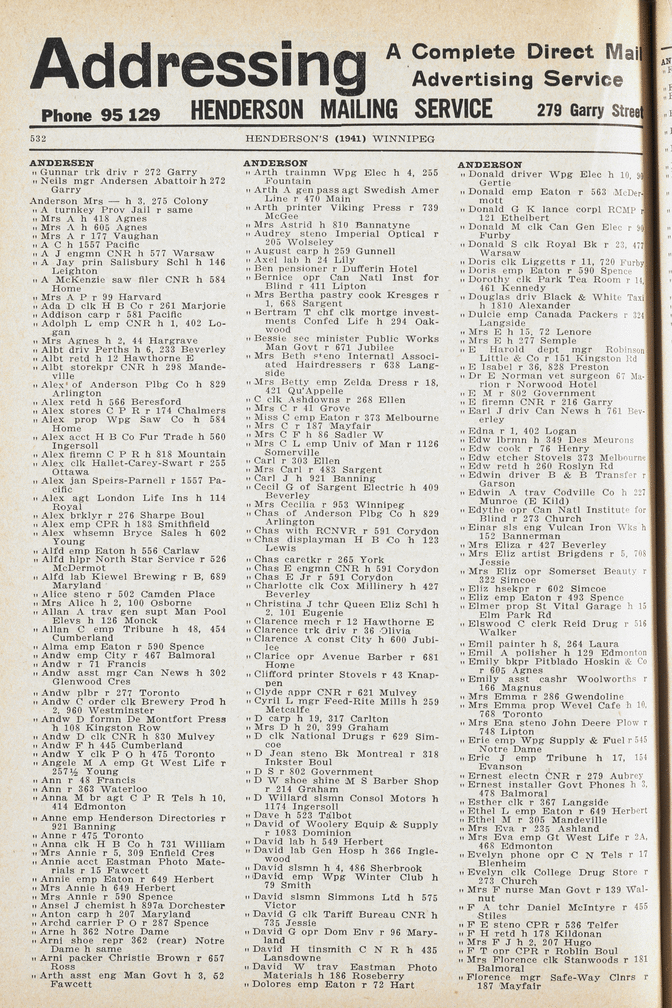 Addressing
A Complete Direct Mail
Advertising Service
Phone 95 129 HENDERSON MAILING SERVICE 279 Garry Street
532 HENDERSON'S (1941) WINNIPEG
ANDERSEN
" Gunnar trk driv r 272 Garry
" Neils mgr Andersen Abattoir h 272
Garry
Anderson Mrs — h 3, 275 Colony
" A turnkey Prov Jail r same
" Mrs A h 418 Agnes
" Mrs A h 605 Agnes
" Mrs A r 177 Vaughan
" A C h 1557 Pacific
" A J engmn CNR h 577 Warsaw
" A Jay prin Salisbury Schl h 146
Leighton
" A McKenzie saw filer CNR h 584
Home
" Mrs A P r 99 Harvard
" Ada D clk H B Co r 261 Marjorie
" Addison carp r 581 Pacific
" Adolph L emp CNR h 1, 402 Lo-
gan
" Mrs Agnes h 2, 44 Hargrave
" Albt driv Perths h 6, 233 Beverley
" Albt retd h 12 Hawthorne E
" Albt storekpr CNR h 298 Mande-
ville
" Alex of Anderson Plbg Co h 829
Arlington
" Alex retd h 566 Beresford
" Alex stores C P R r 174 Chalmers
" Alex prop Wpg Saw Co h 584
Home
" Alex acct H B Co Fur Trade h 560
Ingersoll
" Alex firemn C P R h 818 Mountain
" Alex clk Hallet-Carey-Swart r 255
Ottawa
" Alex jan Speirs-Parnell r 1557 Pa-
cific
" Alex agt London Life Ins h 114
Royal
" Alex brklyr r 276 Sharpe Boul
" Alex emp CPR h 183 Smithfield
" Alex whsemn Bryce Sales h 602
Young
" Alfd emp Eaton h 556 Carlaw
" Alfd hlpr North Star Service r 526
McDermot
" Alfd lab Kiewel Brewing r B, 689
Maryland
" Alice steno r 502 Camden Place
" Mrs Alice h 2, 100 Osborne
" Allan A trav gen supt Man Pool
Elevs h 126 Monck
" Allan C emp Tribune h 48, 454
Cumberland
" Alma emp Eaton r 590 Spence
" Andw emp City r 467 Balmoral
" Andw r 71 Francis
" Andw asst mgr Can News h 302
Glenwood Cres
" Andw plbr r 277 Toronto
" Andw C order clk Brewery Prod h
2, 960 Westminster
" Andw D formn De Montfort Press
h 108 Kingston Row
" Andw D clk CNR h 830 Mulvey
" Andw F h 445 Cumberland
" Andw Y clk P O h 475 Toronto
" Angele M A emp Gt West Life r
257½ Young
" Ann r 48 Francis
" Ann r 363 Waterloo
" Anna M br agt C P R Tels h 10,
414 Edmonton
" Anne emp Henderson Directories r
921 Banning
" Anne r 475 Toronto
" Anna clk H B Co h 731 William
" Mrs Anne r 5, 309 Enfield Cres
" Annie acct Eastman Photo Mate-
rials r 15 Fawcett
" Annie emp Eaton r 649 Herbert
" Mrs Annie h 649 Herbert
" Mrs Annie r 590 Spence
" Ansel J chemist h 897a Dorchester
" Anton carp h 207 Maryland
" Archd carrier P O r 287 Spence
" Arne h 362 Notre Dame
" Arni shoe repr 362 (rear) Notre
Dame h same
" Arni packer Christie Brown r 657
Ross
" Arth asst eng Man Govt h 3, 52
Fawcett
ANDERSON
" Arth trainmn Wpg Elec h 4, 255
Fountain
" Arth A gen pass agt Swedish Amer
Line r 470 Main
" Arth printer Viking Press r 739
McGee
" Mrs Astrid h 810 Bannatyne
" Audrey steno Imperial Optical r
205 Wolseley
" August carp h 259 Gunnell
" Axel lab h 24 Lily
" Ben pensioner r Dufferin Hotel
" Bernice opr Can Natl Inst for
Blind r 411 Lipton
" Mrs Bertha pastry cook Kresges r
1, 668 Sargent
" Bertram T chf clk mortge invest-
ments Confed Life h 294 Oak-
wood
" Bessie sec minister Public Works
Man Govt r 671 Jubilee
" Mrs Beth steno Internatl Associ-
ated Hairdressers r 638 Lang-
side
" Mrs Betty emp Zelda Dress r 18,
421 Qu'Appelle
" C clk Ashdowns r 268 Ellen
" Mrs C r 41 Grove
" Miss C emp Eaton r 373 Melbourne
" Mrs C r 187 Mayfair
" Mrs C F h 86 Sadler W
" Mrs C L emp Univ of Man r 1126
Somerville
" Carl r 303 Ellen
" Mrs Carl r 483 Sargent
" Carl J h 921 Banning
" Cecil G of Sargent Electric h 409
Beverley
" Mrs Cecilia r 953 Winnipeg
" Chas of Anderson Plbg Co h 829
Arlington
" Chas with RCNVR r 591 Corydon
" Chas displayman H B Co h 123
Lewis
" Chas caretkr r 265 York
" Chas E engmn CNR h 591 Corydon
" Chas E Jr r 591 Corydon
" Charlotte clk Cox Millinery h 427
Beverley
" Christina J tchr Queen Eliz Schl h
2, 101 Eugenie
" Clarence mech r 12 Hawthorne E
" Clarence trk driv r 36 Olivia
" Clarence A const City h 600 Jubi-
lee
" Clarice opr Avenue Barber r 681
Home
" Clifford printer Stovels r 43 Knap-
pen
" Clyde appr CNR r 621 Mulvey
" Cyril L mgr Feed-Rite Mills h 259
Metcalfe
" D carp h 19, 317 Carlton
" Mrs D h 20, 399 Graham
" D clk National Drugs r 629 Sim-
coe
" D Jean steno Bk Montreal r 318
Inkster Boul
" D S r 802 Government
" D W shoe shine M S Barber Shop
r 214 Graham
" D Willard slsmn Consol Motors h
1174 Ingersoll
" Dave h 523 Talbot
" David of Woolery Equip & Supply
r 1083 Dominion
" David lab h 549 Herbert
" David lab Gen Hosp h 366 Ingle-
wood
" David slsmn h 4, 486 Sherbrook
" David emp Wpg Winter Club h
79 Smith
" David slsmn Simmons Ltd h 575
Victor
" David G clk Tariff Bureau CNR h
735 Jessie
" David G opr Dom Env r 96 Mary-
land
" David H tinsmith C N R h 435
Lansdowne
" David W trav Eastman Photo
Materials h 186 Roseberry
" Dolores emp Eaton r 72 Hart
ANDERSON
" Donald driver Wpg Elec h 10,
Gertie
" Donald emp Eaton r 563 McDer-
mott
" Donald G K lance corpl RCMP r
121 Ethelbert
" Donald M clk Can Gen Elec r
Furby
" Donald S clk Royal Bk r 23, 477
Warsaw
" Doris clk Liggetts r 11, 720 Furby
" Doris emp Eaton r 590 Spence
" Dorothy clk Park Tea Room r 14,
461 Kennedy
" Douglas driv Black & White Taxi
h 1810 Alexander
" Dulcie emp Canada Packers r 324
Langside
" Mrs E h 15, 72 Lenore
" Mrs E h 277 Semple
" E Harold dept mgr Robinson
Little & Co r 151 Kingston Rd
" E Isabel r 36, 828 Preston
" Dr E Norman vet surgeon 67 Ma-
rion r Norwood Hotel
" E M r 802 Government
" E firemn CNR r 216 Garry
" Earl J driv Can News h 761 Bev-
erley
" Edna r 1, 402 Logan
" Edw lbrmn h 349 Des Meurons
" Edw cook r 76 Henry
" Edw etcher Stovels 373 Melbourne
" Edw retd h 260 Roslyn Rd
" Edwin driver B & B Transfer r
Garson
" Edwin A trav Codville Co h 227
Munroe (E Kild)
" Edythe opr Can Natl Institute for
Blind r 273 Church
" Einar sls eng Vulcan Iron Wks h
152 Bannerman
" Mrs Eliza r 427 Beverley
" Mrs Eliz artist Brigdens r 5, 708
Jessie
" Mrs Eliz opr Somerset Beauty r
322 Simcoe
" Eliz hsekpr r 602 Simcoe
" Eliz emp Eaton r 493 Spence
" Elmer prop St Vital Garage h 15
Elm Park Rd
" Elswood C clerk Reid Drug r 516
Walker
" Emil painter h 8, 264 Laura
" Emil A polisher h 129 Edmonton
" Emily bkpr Pitblado Hoskin & Co
r 605 Agnes
" Emily asst cashr Woolworths r
166 Magnus
" Mrs Emma r 286 Gwendoline
" Mrs Emma prop Wevel Cafe h 10,
768 Toronto
" Mrs Ena steno John Deere Plow r
748 Lipton
" Eric emp Wpg Supply & Fuel r 545
Notre Dame
" Eric J emp Tribune h 17, 154
Evanson
" Ernest electn CNR r 279 Aubrey
" Ernest installer Govt Phones h 3,
478 Balmoral
" Esther clk r 367 Langside
" Ethel L emp Eaton r 649 Herbert
" Ethel M r 305 Mandeville
" Mrs Eva r 235 Ashland
" Mrs Eva emp Gt West Life r 2A,
468 Edmonton
" Evelyn phone opr C N Tels r 17
Blenheim
" Evelyn clk College Drug Store r
273 Church
" Mrs F nurse Man Govt r 139 Wal-
nut
" F A tchr Daniel McIntyre r 455
Stiles
" F E steno CPR r 536 Telfer
" F H retd h 178 Kildonan
" Mrs F J h 2, 207 Hugo
" F T opr CPR r Roblin Boul
" Mrs Florence clk Stanwoods r 181
Balmoral
" Florence mgr Safe-Way Clnrs r
187 Mayfair